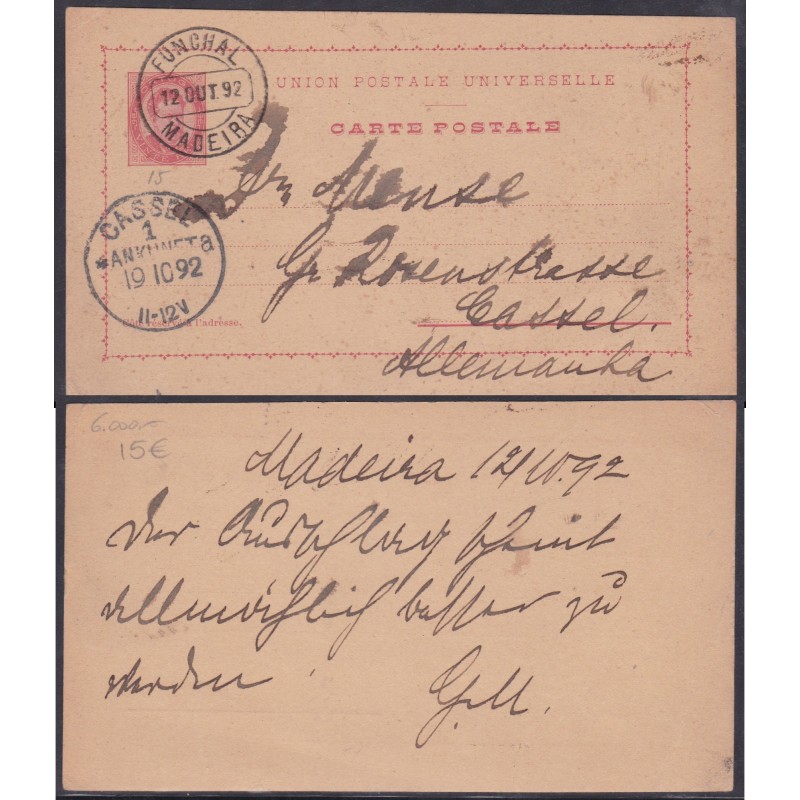 FUNCHAL
12 OUT. 92
MADEIRA
UNION POSTALE UNIVERSELLE
CARTE POSTALE
15
CASSEL
1
* ANKUNFT a
19 10 92
11-12V
Mense
Gr Rosenstrasse
Cassel.
Allemanha
Côté réservé à l'adresse.
6.000.-
15€
Madeira 12/10.92
Der Ausschlag scheint
allmählich besser zu
werden.
G.M.